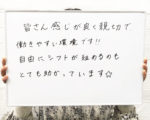 皆さん感じが良く親切で
働きやすい環境です!!
自由にシフトが組めるのも
とても助かっています☆